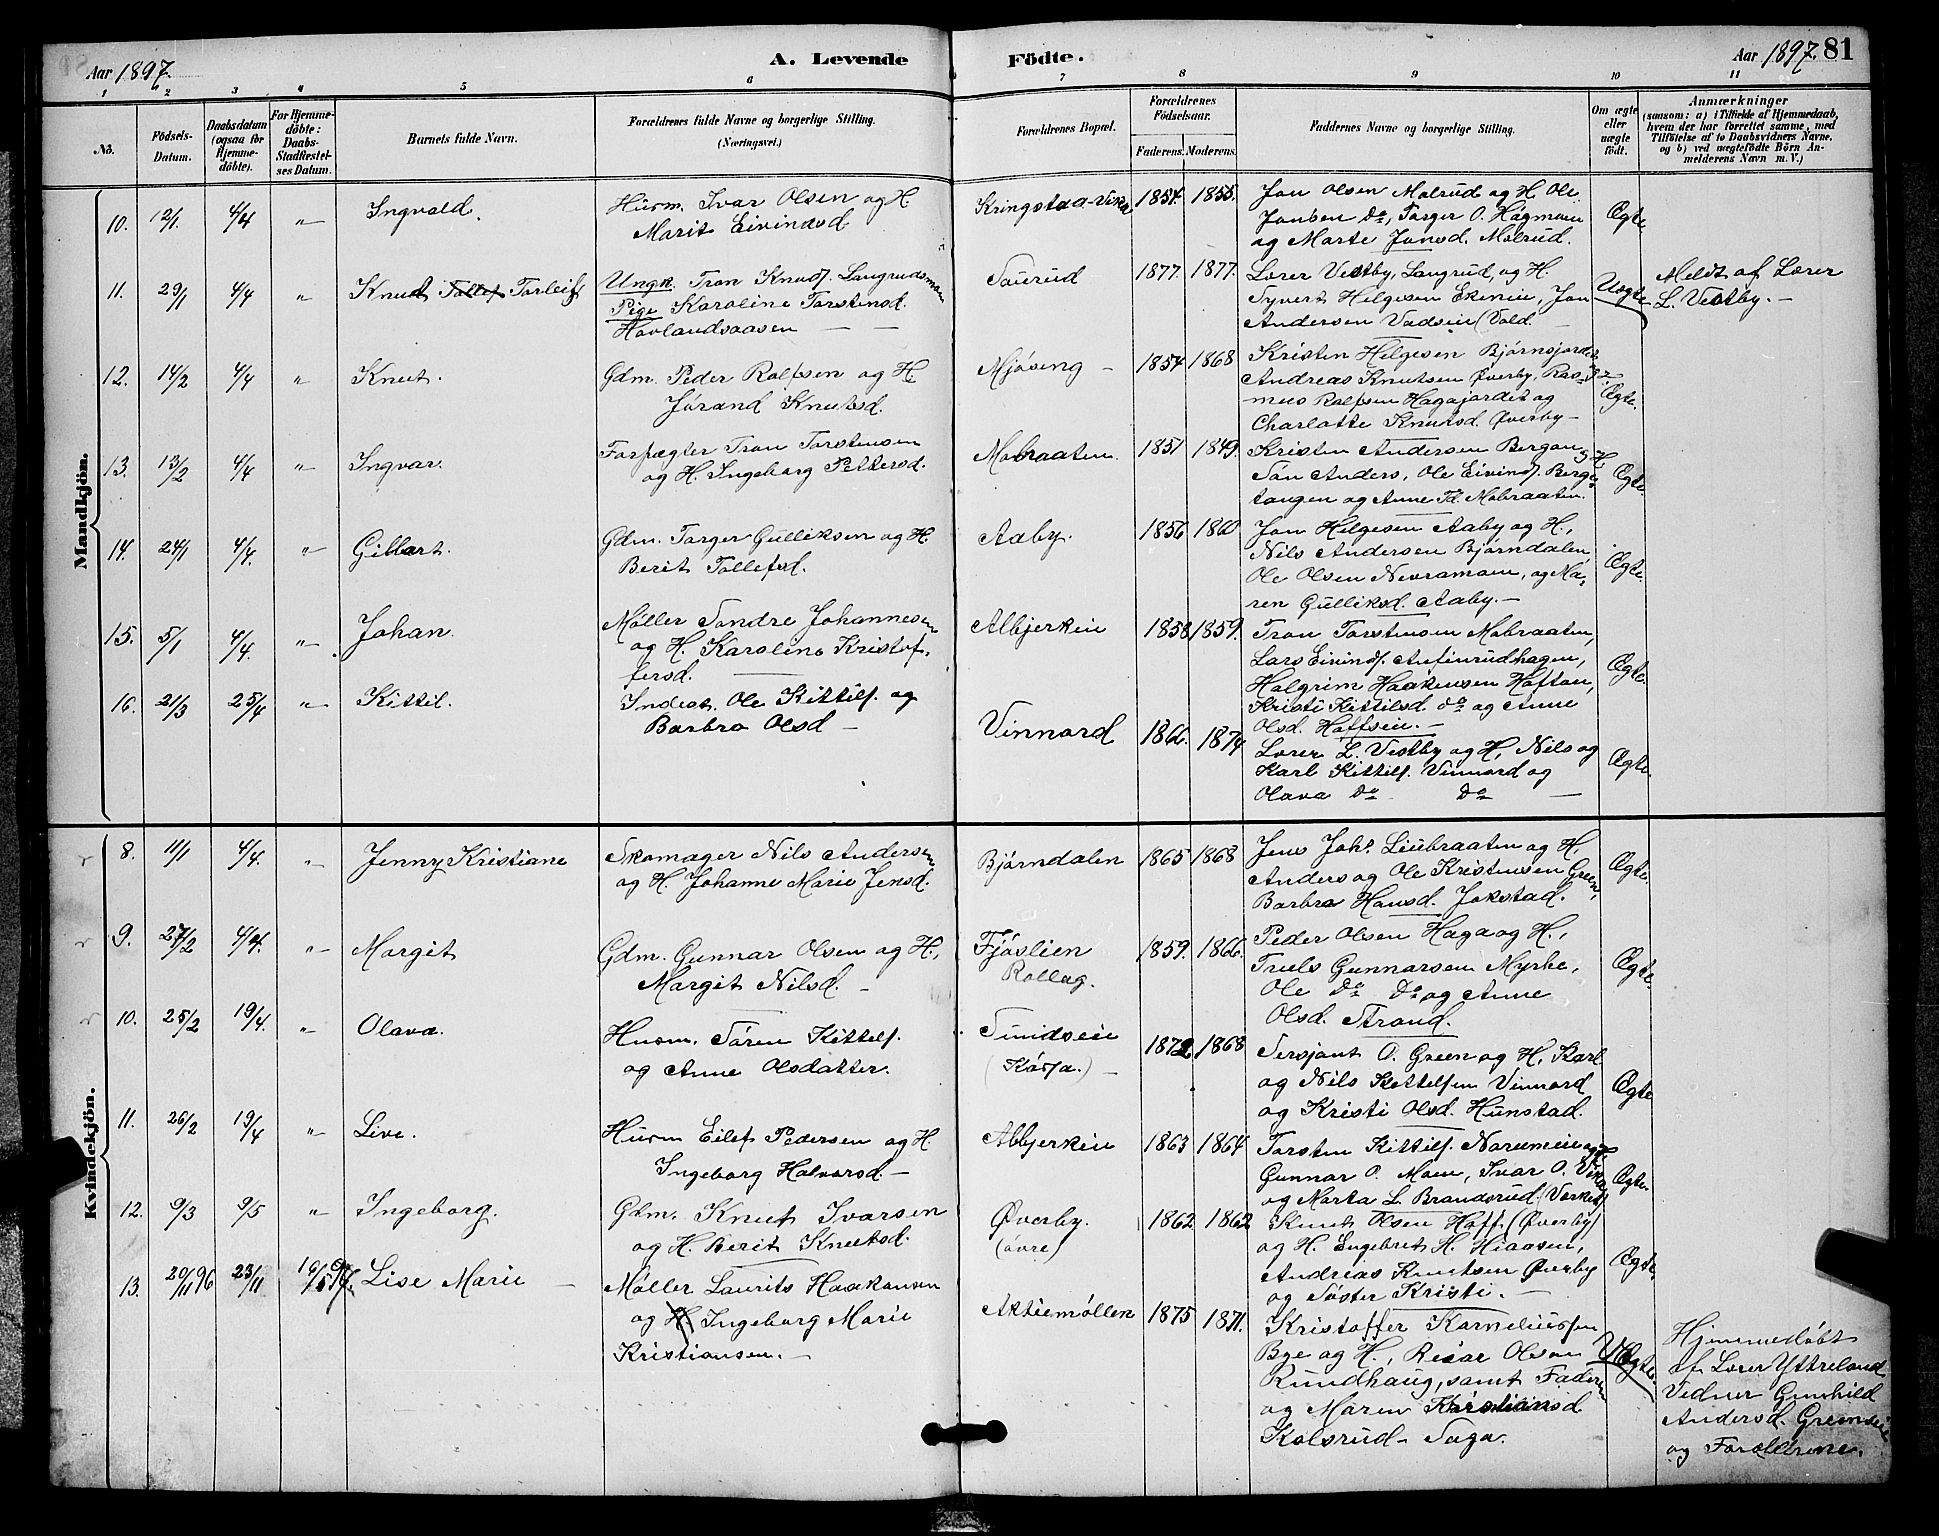 Aar 1897.
A. Levende
Födte.
Aar 1897.
81
1 2 3 4 5 6 7 8 9 10 11
No.
Födsels-
Datum.
Daabsdatum
(ogsaa for
Hjemme-
döbte).
For Hjemme-
döbte:
Daabs-
Stadfæstel-
ses Datum.
Barnets fulde Navn.
Forældrenes fulde Navne og borgerlige Stilling.
(Næringsvei.)
Forældrenes Bopæl.
Forældrenes
Födselsaar.
Faderens. Moderens.
Faddernes Navne og borgerlige Stilling.
Om ægte
eller
uægte
födt.
Anmærkninger
(saasom: a) i Tilfælde af Hjemmedaab,
hvem der har forrettet samme, med
Tilföielse af to Daabsvidners Navne,
og b) ved uægtefödte Börn An-
melderens Navn m. V.)
Mandkjön.
10. 12/1. 4/4 " Ingvald.
Husm. Ivar Olsen og H.
Marit Eivindsd.
Kringstaa-Vika 1854. 1855.
Jon Olsen Molrud og H. Ole
Jonsen do, Torger O. Hagmoen
og Marte Jonsd. Molrud.
Ægte
11. 29/1 4/4 " Knut Tollef Torleif
Ungk. Tron Knuds. Langrudsmoen
Pige Karoline Torstensd.
Hovlandsaasen
Saurud 1877. 1877.
Lærer Vestby, Langrud, og H.
Syvert Helgesen Ekeneie, Jon
Andersen Vadseie (Vold.
Uægte
Meldt af Lærer
L. Vestby.
12. 14/2 4/4 " Knut.
Gdm. Peder Rolfsen og H.
Jørand Knutsd.
Mjøseng 1854 1868
Kristen Helgesen Bjørnsjordet
Andreas Knutsen Øverby, Ras-
mus Rolfsen Hagajordet og
Charlotte Knutsd. Øverby
Ægte.
13. 13/2 4/4 " Ingvar.
Forpagter Tron Torstensen
og H. Ingeborg Pettersd.
Mobraaten 1851 1849.
Kristen Andersen Bergan og H,
Søn Anders, Ole Eivinds. Berge-
tangen og Anne Td. Mobraaten.
Ægte.
14. 24/1 4/4. " Gilbert.
Gdm. Torger Gulliksen og H.
Berit Tollefsd.
Aaby. 1856 1860
Jon Helgesen Aaby og H,
Nils Andersen Bjørndalen,
Ole Olsen Nevramoen, og Ma-
ren Gulliksd. Aaby.
Ægte.
15. 5/1 4/4. " Johan.
Møller Søndre Johannesen
og H. Karoline Kristof-
fersd.
Albjerkeie 1858 1859.
Tron Torstensen Mobraaten,
Lars Eivinds. Anfinrudhagen,
Halgrim Haakensen Hoftan,
Kristi Kittilsd do og Anne
Olsd. Hoffseie.
Ægte.
16. 21/3 25/4 " Kittil.
Inderst. Ole Kittils. og
Barbro Olsd
Vinnord 1866. 1874
Lærer L. Vestby og H, Nils og
Karl Kittils. Vinnord og
Olava do do
Ægte.
Kvindekjön.
8. 11/1 4/4. " Jenny Kristiane
Skomager Nils Andersen
og H. Johanne Marie Jensd.
Bjørndalen 1865 1868
Jens Johs. Liebraaten og H.
Anders og Ole Kristensen Green,
Barbro Hansd. Jokstad.
Ægte.
9. 27/2 4/4. " Margit
Gdm. Gunnar Olsen og H,
Margit Nilsd.
Fjøslien
Rollag.
1859. 1866.
Peder Olsen Haga og H,
Truls Gunnarsen Myrhe,
Ole do do og Anne
Olsd. Strand.
Ægte.
10. 25/2 19/4. " Olava
Husm. Søren Kittels.
og Anne Olsdatter.
1872. 1868
Sersjant O. Green og H, Karl
og Nils Kittelsen Vinnord
og Kristi Olsd. Hunstad.
Ægte
11. 26/2 19/4 " Live.
Husm Eilef Pedersen og H.
Ingeborg Halvorsd.
Albjerkeie 1863 1864
Torsten Kittils. Noreneie og H.
Gunnar O. Moen, Ivar O. Vika
og Marta L. Brandsrud (Verket)
Ægte.
12. 9/3 9/5 " Ingeborg.
Gdm. Knut Ivarsen
og H. Berit Knutsd.
Øverby.
(øvre)
1862. 1862
Knut Olsen Hoff (Øverby)
og H. Engebret H. Hiaasen,
Andreas Knutsen Øverby
og Søster Kristi.
Ægte.
13. 20/11 96 23/11 16/5 97. Lise Marie
Møller Laurits Haakonsen
og H. Ingeborg Marie
Kristiansen.
Aktiemøllen 1875 1871.
Kristoffer Korneliussen
Bye og H, Reiar Olsen
Rundhaug, samt Faderen
og Maren Kristiansd
Kolsrud - Saga.
Uægte
Hjemmedøbt
af Lærer Ytreland
Vidner Gunhild
Andersd. Grønseie
og Forældrene.